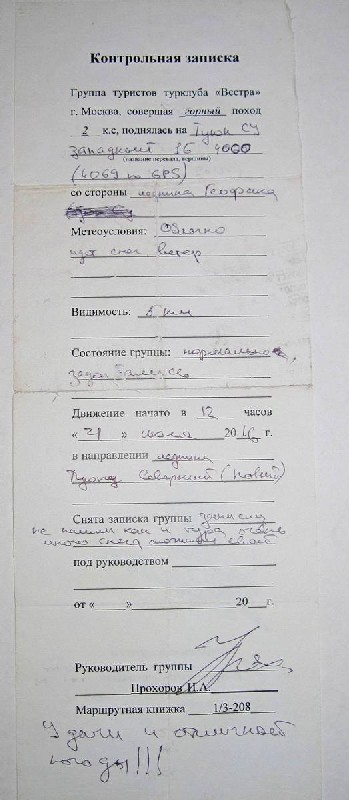 Контрольная записка
Группа туристов турклуба «Вестра»
г. Москва, совершая горный поход
2 к.с, поднялась на Туюк СУ
западный 1Б 4000
(название перевала, вершины)
(4069 по GPS)
со стороны ледника Географа
Метеоусловия: Облачно
идет снег ветер
Видимость: 5 км
Состояние группы: нормальное,
Движение начато в 12 часов
« 21 » 20 г.
в направлении ледника
Северный (Новый)
Снята записка группы записку
не нашли как и тура очень
много снега
под руководством
от « » 20 г.
Руководитель группы
Прохоров И.А.
Маршрутная книжка 1/3-208
Удачи и отличной
погоды!!!